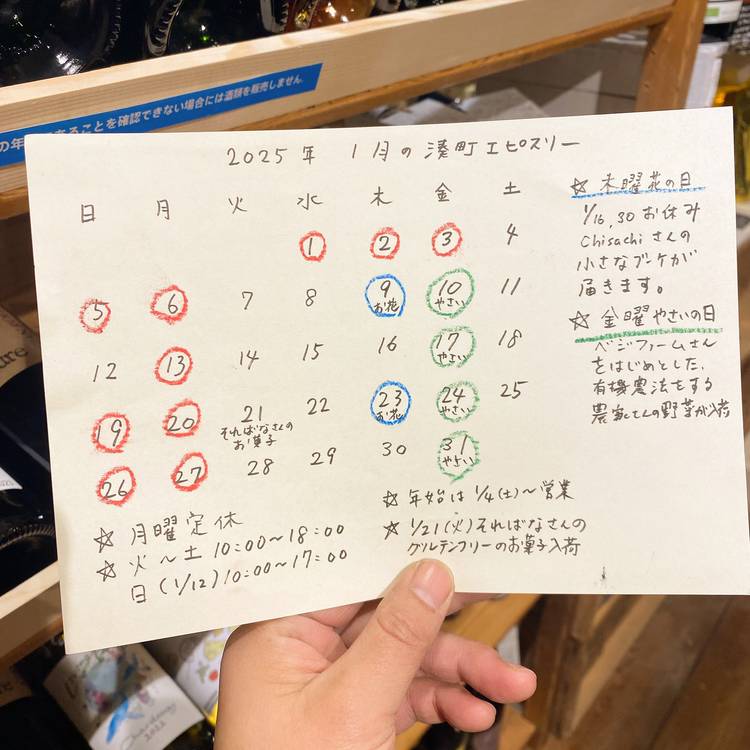 の年
あることを確認できない場合には酒類を販売しません。
2025年 1月の湊町エピスリー
日 月 火 水 木 金 土
1 2 3 4
5 6 7 8 9 10 11
お花 やさい
12 13 14 15 16 17 18
やさい
19 20 21 22 23 24 25
そればなさんの
お菓子
お花 やさい
26 27 28 29 30 31
やさい
☆ 月曜定休
☆ 火〜土 10:00〜18:00
日(1/12)10:00〜17:00
☆ 年始は 1/4(土)〜営業
☆ 1/21(火)そればなさんの
グルテンフリーのお菓子入荷
☆ 木曜花の日
1/16,30 お休み
Chisachiさんの
小さなブーケが
届きます。
☆ 金曜やさいの日
ベジファームさん
をはじめとした、
有機農法をする
農家さんの野菜が入荷
Chardonnay
2022